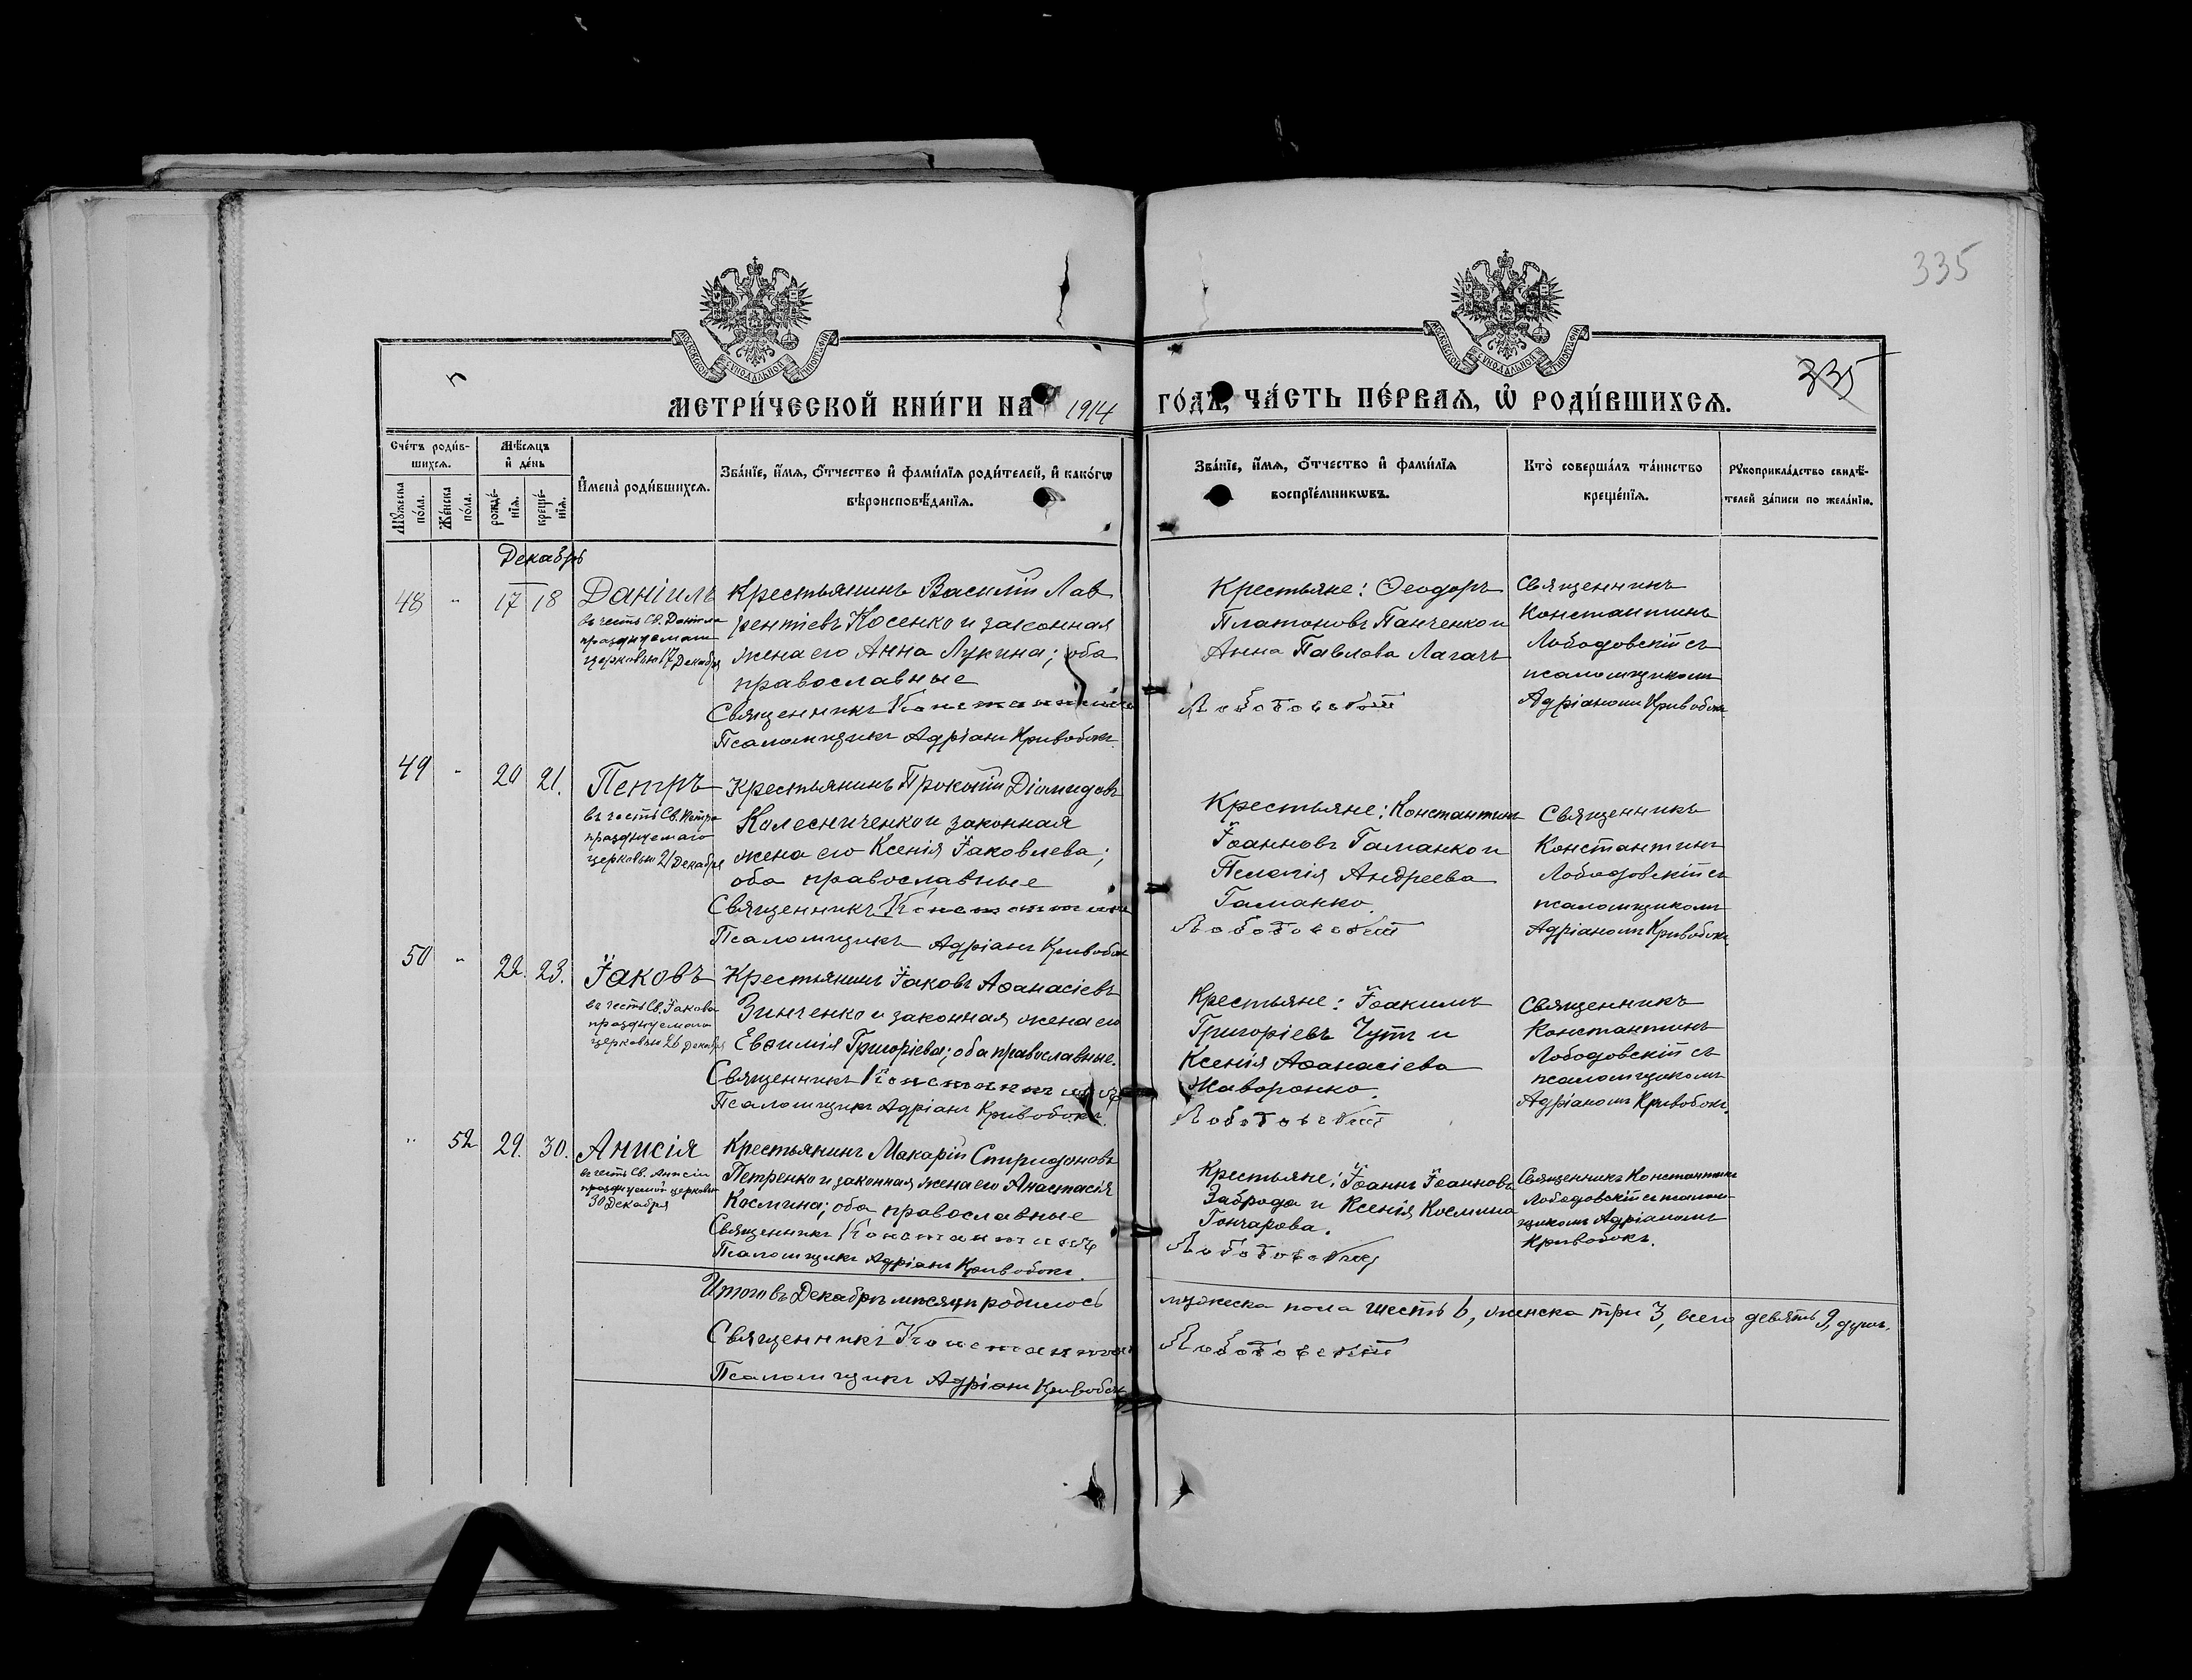 335
335
МОСКОВСКОЙ СѴНОДАЛЬНОЙ ТИПОГРАФІИ
МОСКОВСКОЙ СѴНОДАЛЬНОЙ ТИПОГРАФІИ
МЕТРИ́ЧЕСКОЙ КНИ́ГИ НА 1914 ГО́ДЪ, ЧА́СТЬ ПЕ́РВАЯ, Ѡ РОДИ́ВШИХСЯ.
Сче́тъ роди́в-
шихся.
Мꙋжеска по́ла.
Же́нска по́ла.
Мѣ́сяцъ
и҆ де́нь
рожде́-
нїя.
креще́-
нїя.
И҆мена̀ роди́вшихся.
Зва́нїе, и҆́мя, ѻ҆́тчество и҆ фами́лїя роди́телей, и҆ како́гѡ
вѣроисповѣ́данїя.
Зва́нїе, и҆́мя, ѻ҆́тчество и҆ фами́лїя
воспрїе́мникѡвъ.
Кто̀ соверша́лъ та́инство
креще́нїя.
Рꙋкоприкла́дство свидѣ́-
телей за́писи по жела́нїю.
Декабрь
48 " 17 18
Даніилъ
въ честь Св. Даніила
празднуемаго
церковью 17 Декабря
Крестьянинъ Василій Лав
рентіевъ Косенко и законная
жена его Анна Лукина; оба
православные
Священникъ Константинъ
Псаломщикъ Адріанъ Кривобокъ.
Крестьяне: Ѳеодоръ
Платоновъ Панченко и
Анна Павлова Лагачъ
Лободовскій
Священникъ
Константинъ
Лободовскій съ
псаломщикомъ
Адріаномъ Кривобокъ
49 " 20 21.
Петръ
въ честь Св. Петра
празднуемаго
церковью 21 Декабря
Крестьянинъ Прокопій Діомидовъ
Колесниченко и законная
жена его Ксенія Іаковлева;
оба православные
Священникъ Константинъ
Псаломщикъ Адріанъ Кривобокъ
Крестьяне: Константинъ
Іоанновъ Гаманко и
Пелагія Андреева
Гаманко.
Лободовскій
Священникъ
Константинъ
Лободовскій съ
псаломщикомъ
Адріаномъ Кривобокъ
50 " 22. 23.
Іаковъ
въ честь Св. Іакова
празднуемаго
церковью 26 Декабря
Крестьянинъ Іаковъ Аѳанасіевъ
Зинченко и законная жена его
Евѳимія Григоріева; оба православные.
Священникъ Константинъ
Псаломщикъ Адріанъ Кривобокъ.
Крестьяне: Іоакимъ
Григоріевъ Чутъ и
Ксенія Аѳанасіева
Жаворонко.
Лободовскій
Священникъ
Константинъ
Лободовскій съ
псаломщикомъ
Адріаномъ Кривобокъ.
" 52 29. 30.
Анисія
въ честь Св. Анисіи
празднуемой церковью
30 Декабря
Крестьянинъ Макарій Спиридоновъ
Петренко и законная жена его Анастасія
Космина; оба православные
Священникъ Константинъ
Псаломщикъ Адріанъ Кривобокъ.
Крестьяне: Іоаннъ Іоанновъ
Заброда и Ксенія Космина
Гончарова.
Лободовскій
Священникъ Константинъ
Лободовскій съ псалом-
щикомъ Адріаномъ
Кривобокъ.
Итого въ Декабрѣ мѣсяцѣ родилось мужеска пола шесть 6, женска три 3, всего девять 9, душъ.
Священникъ Константинъ Лободовскій
Псаломщикъ Адріанъ Кривобокъ